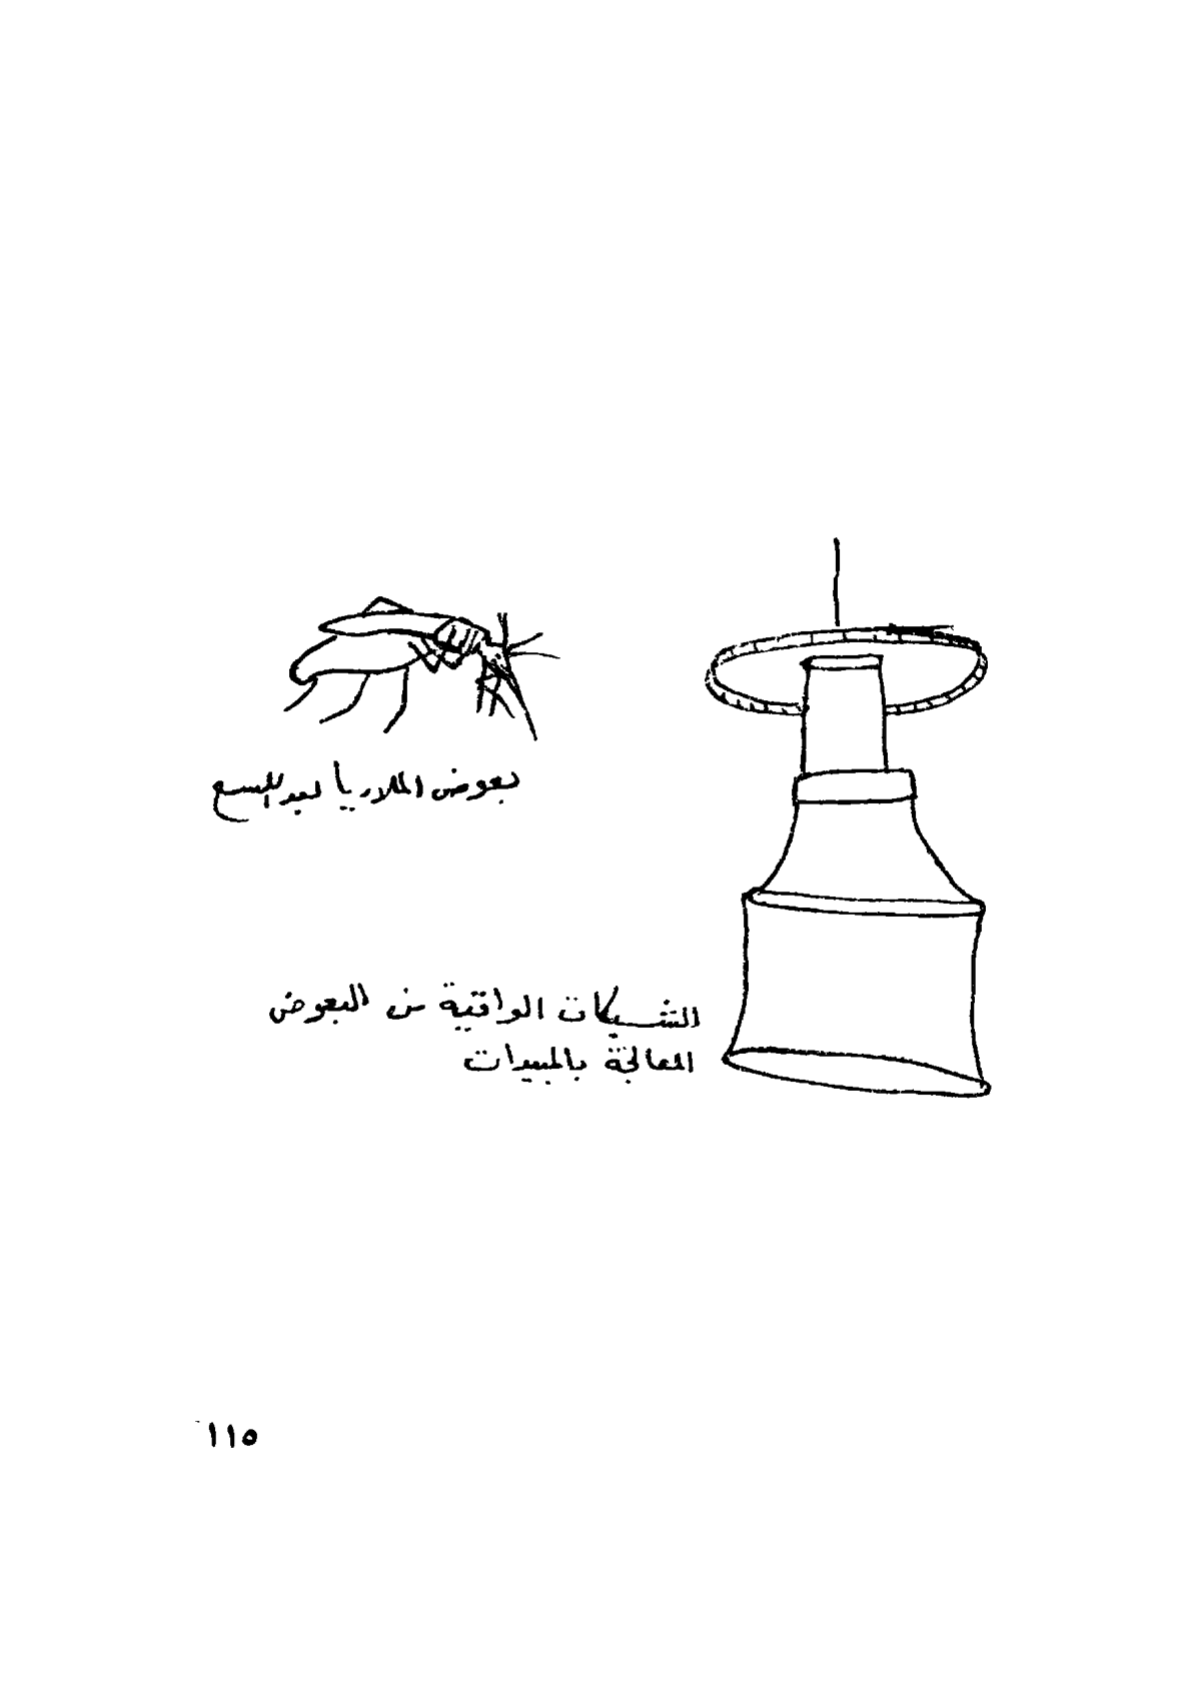 بعوض الملاريا بعد اللسع
الشبكات الواقية من البعوض
المعالجة بالمبيدات
١١٥